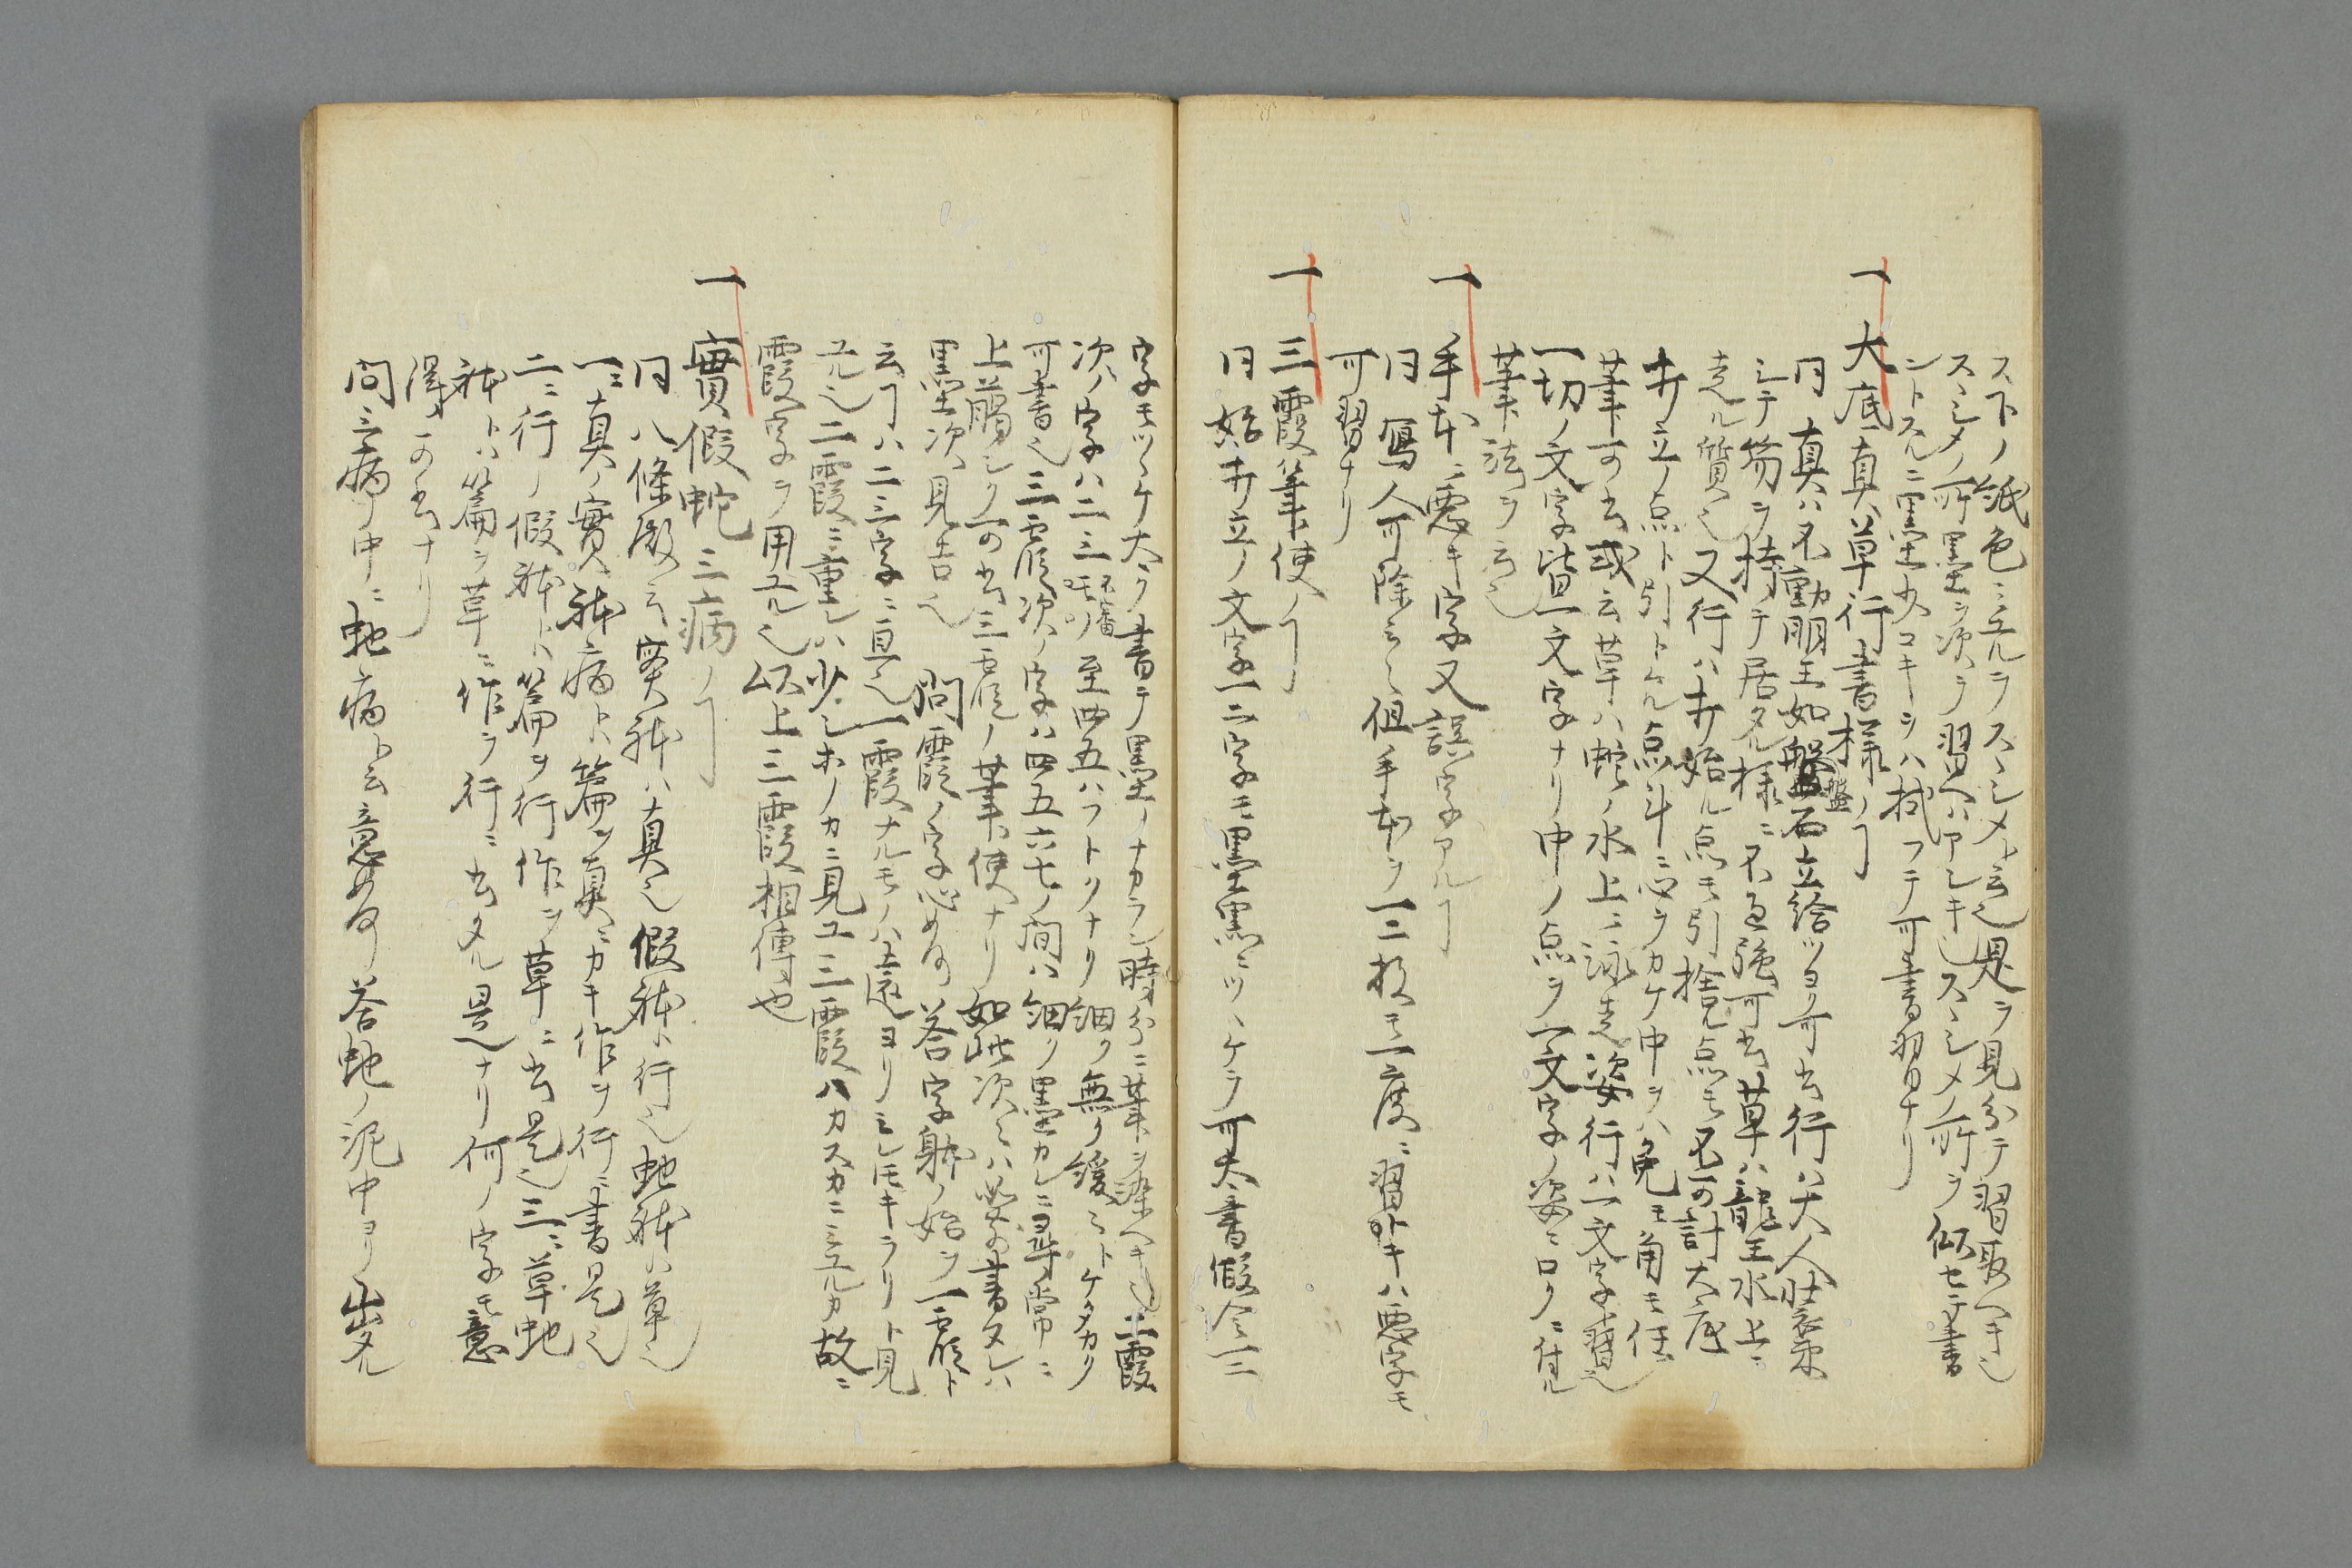 ス下ノ紙色ミエルヲスヽシメト云也是ヲ見分テ習取ヘキ也
スヽシメノ所墨ヲ次ヲ習ヘハアシキ也スヽシメノ所ヲ似セテ書
ントスルニ墨少コキヲハ拭フテ可書習ナリ
一 大底真草行書様ノヿ
曰 真ハ不動明王如盤石立給ツヨク可書行ハ大人壮
シテ笏ヲ持テ居タル様ニ不強可書草ハ龍王水上ニ
走ル質也又行ハ打始ル点モ引捨点モ不可計大底
打立ノ点ト引トル点斗ニ心ヲカケ中ヲハ兎モ角モ任
筆可書或云草ハ蛇ノ水上ニ泳走姿行ハ一文字習也
一切ノ文字皆一文字ナリ中ノ点ヲ一文字ノ姿ニロクニ付ル
筆法ヲ云也
一 手本ニ悪キ字又誤字アルヿ
曰 寫人可除之但手本ヲ一二枚モ一度ニ習トキハ悪字モ
可習ナリ
一 三霞筆使ノヿ
曰 始打立ノ文字一二字モ墨黒ニツヽケラ可大書假令一二
字モツヽケ大ク書テ墨ノナカラン時分ニ筆ヲ染ヘキ也二霞
次ノ字ハ二三 至四五ハフトクナリ細ク無ク緩々トケタカク
可書也三霞次ノ字ハ四五六七ノ間ハ細ク墨カレニ尋常ニ
上臈シク可書三霞ノ筆使ナリ如此次々ハ 書タレハ
黒次見吉也 問霞ノ字心如何 答字躰ノ始ヲ一霞ト
云ヿハ二三字ニ亘也一霞ナルモノハ遠ヨリミレ𪜈キラリト見
エル也二霞ニ重レハ少シホノカニ見エ三霞ハカスカニミエルカ故ニ
霞字ヲ用エル也 以上三霞相傳也
一 實假蛇三病ノヿ
曰 八條殿云実躰ハ真也假躰ハ行也虵躰ハ草也
一ニ真ノ實躰病トハ篇ヲ真ニカキ作ヲ行ニ書是也
二ニ行ノ假躰トハ篇ヲ行作ヲ草ニ書是也三ニ草虵
躰トハ篇ヲ草ニ作ヲ行ニ書タル是ナリ何ノ字モ意
得可書ナリ
問三病中ニ虵病ト云意如何 答虵ノ泥中ヨリ出タル